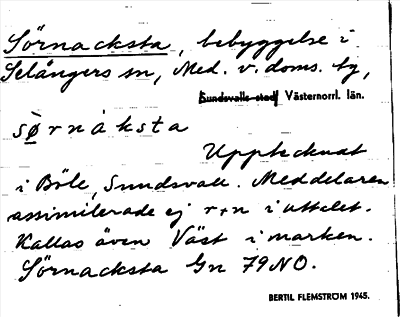 Sörnacksta, bebyggelse i
Selångers sn, Med. v. doms. tg,
Sundsvalls stad, Västernorrl. län.
sørnáksta
Upptecknat
i Böle, Sundsvall. Meddelaren
assimilerade ej r+n i uttalet.
Kallas även Väst i marken.
Sörnacksta Gn 79 NO.
BERTIL FLEMSTRÖM 1945.